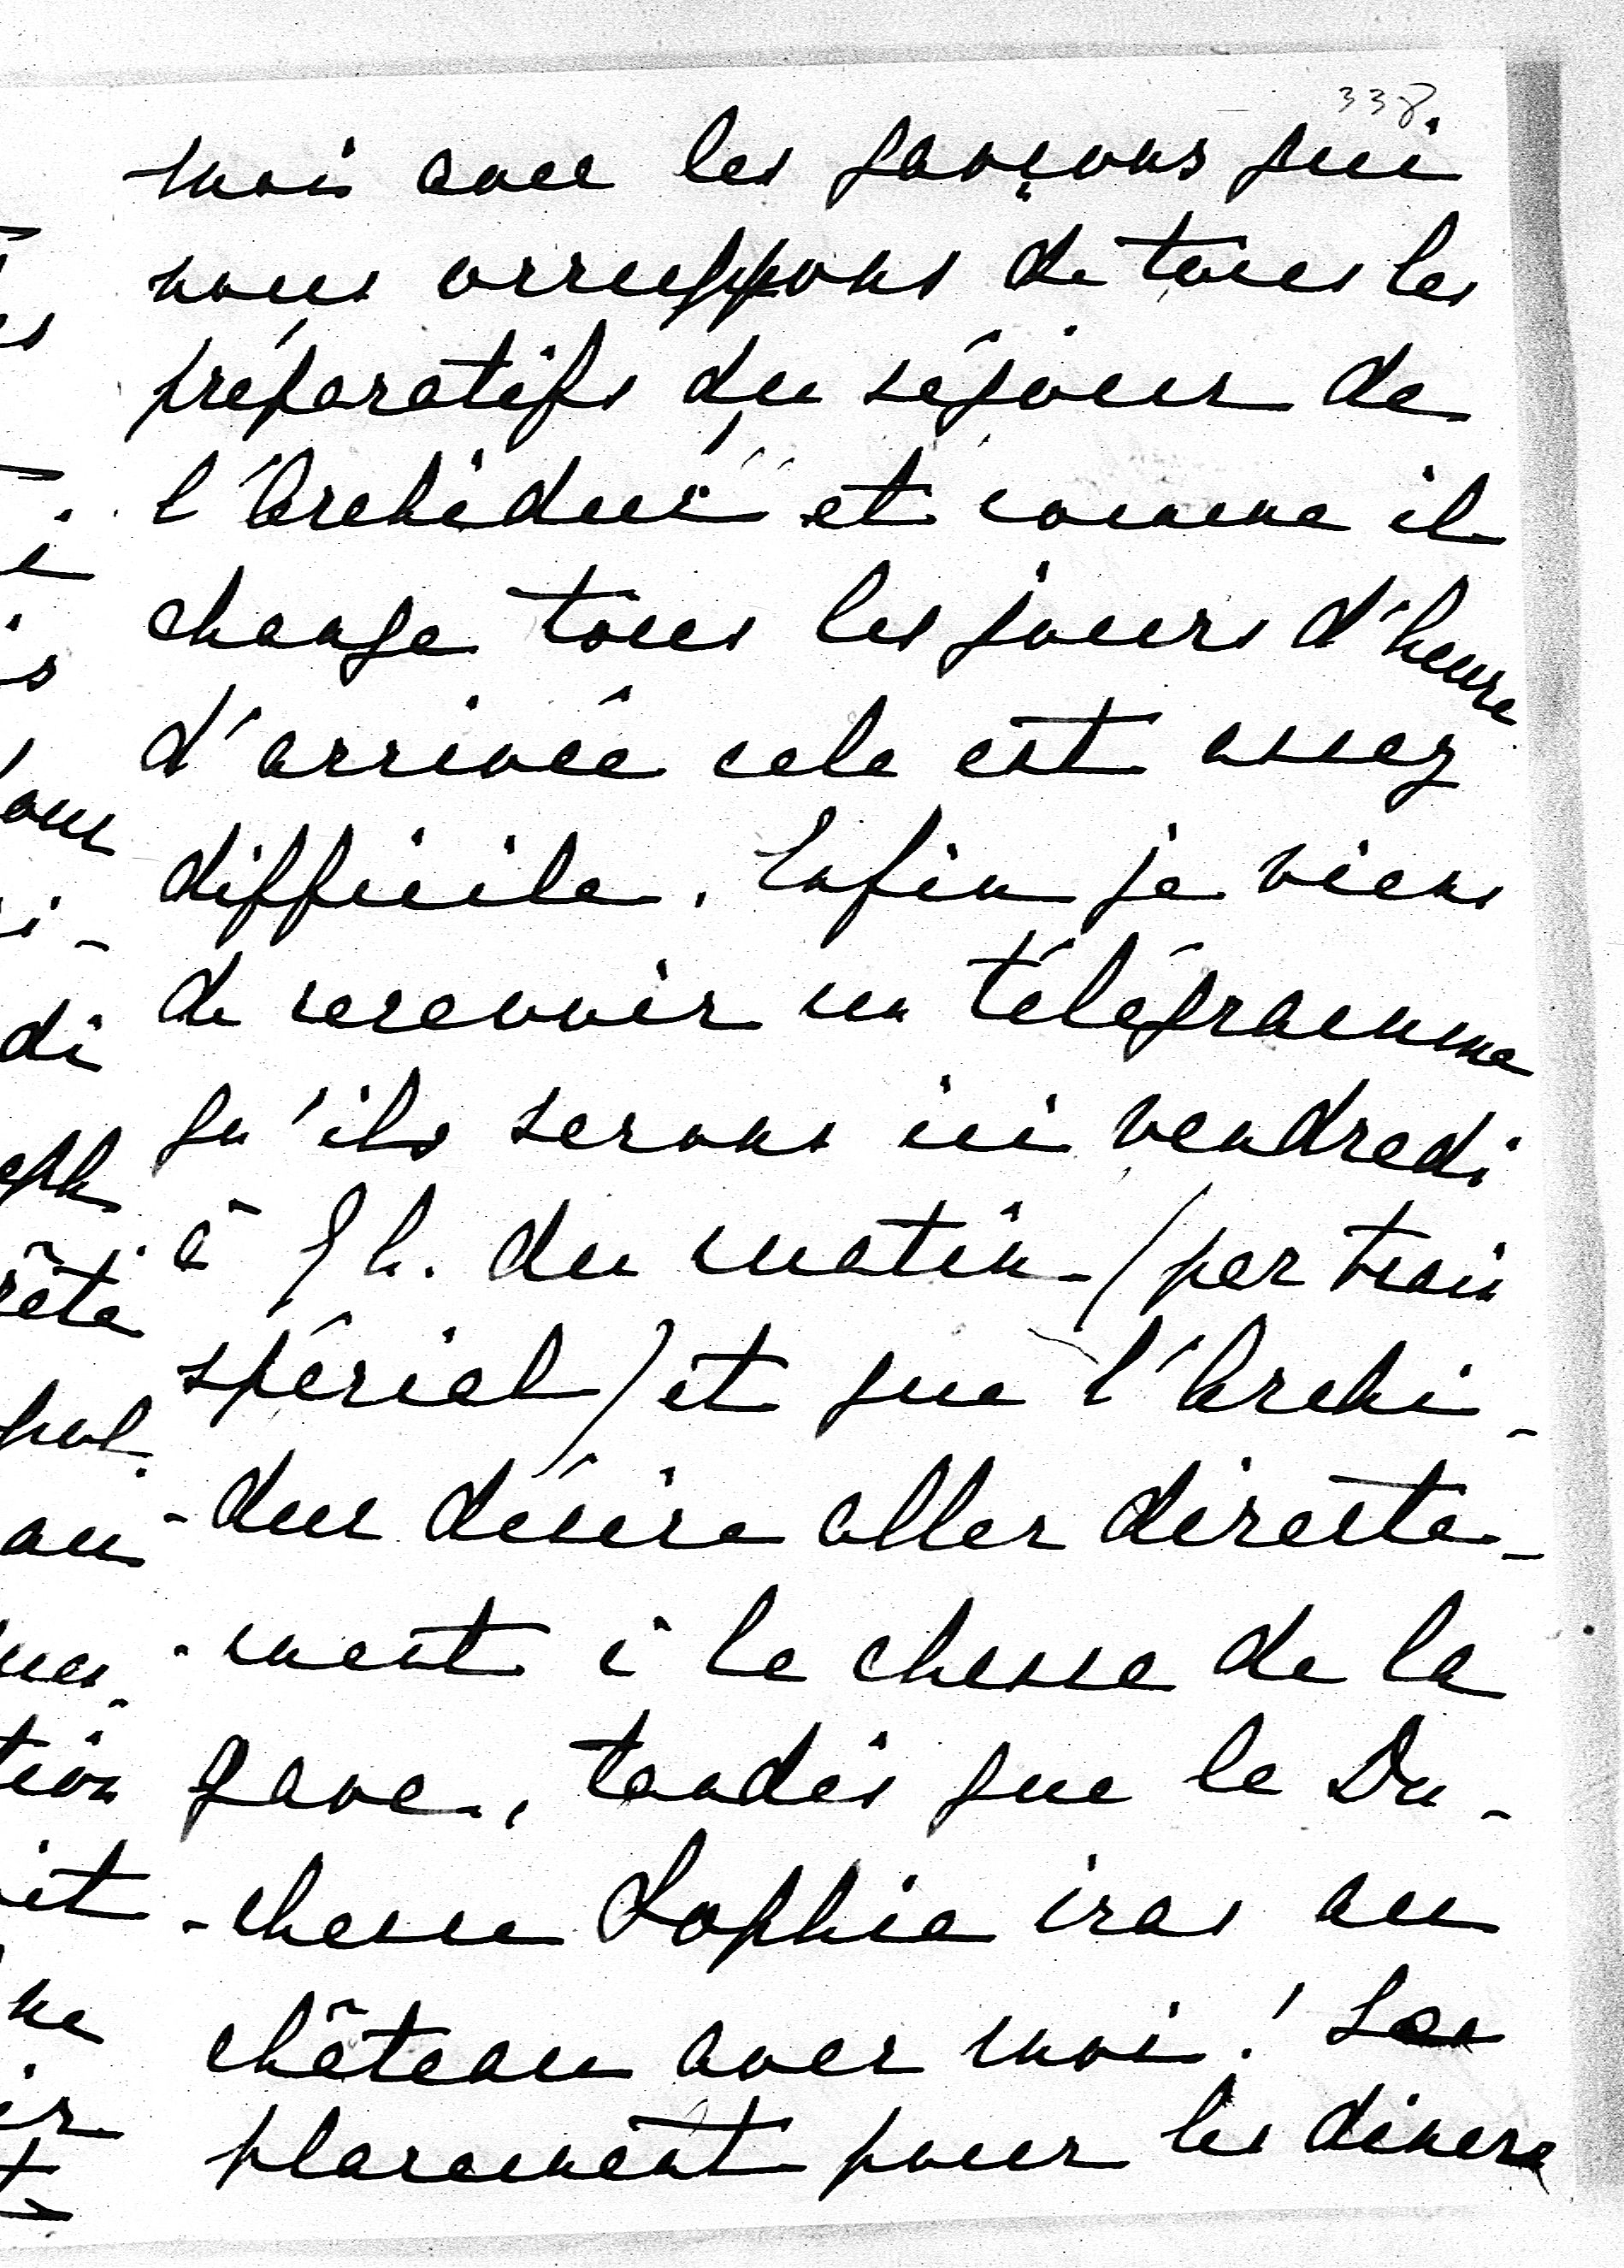 338.
moi avec les garçons qui
nous occuppons de tous les
préparatifs du séjour de
l'Archiduc et comme il
change tous les jours d'heure
d'arrivée cela est assez
difficile. Enfin je viens
de recevoir un télégramme
qu'ils serons ici vendredi
à h. du matin (par train
spécial) et que l'Archi-
-duc désire aller directe-
-ment à la chasse de la
gare, tandis que la Du-
-chesse Sophie iras au
château avec moi! Le
placement pour les diners